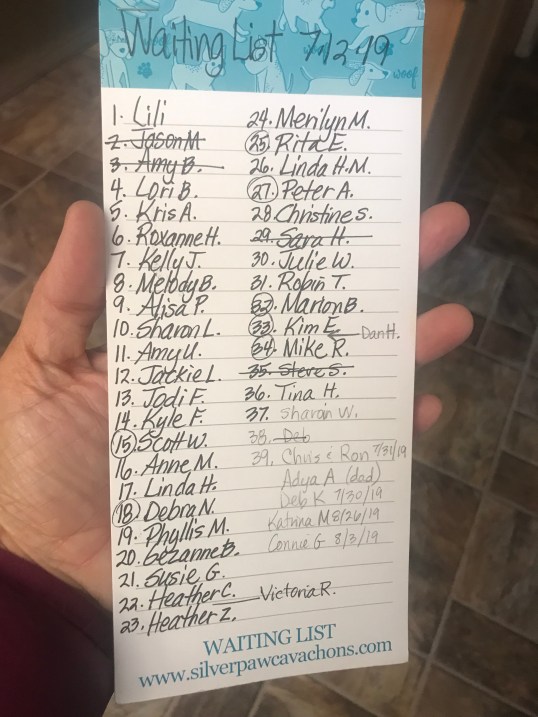 Waiting List 7-12-19
woof
1. Lili
2. Jason M
3. Amy B.
4. Lori B.
5. Kris A.
6. Roxanne H.
7. Kelly J.
8. Melody B.
9. Alisa P.
10. Sharon L.
11. Amy U.
12. Jackie L.
13. Jodi F.
14. Kyle F.
15. Scott W.
16. Anne M.
17. Linda H.
18. Debra N.
19. Phyllis M.
20. Gezanne B.
21. Susie G.
22. Heather C. Victoria R.
23. Heather Z.
24. Merilyn M.
25. Rita E.
26. Linda H.M.
27. Peter A.
28. Christine S.
29. Sara H.
30. Julie W.
31. Robin T.
32. Marlon B.
33. Kim E. Dan H.
34. Mike R.
35. Steve S.
36. Tina H.
37. Sharon W.
38. Deb
39. Chris & Ron 7/31/19
Adya A (dad)
Deb K 7/30/19
Katrina M 8/26/19
Connie G 8/3/19
WAITING LIST
www.silverpawcavachons.com